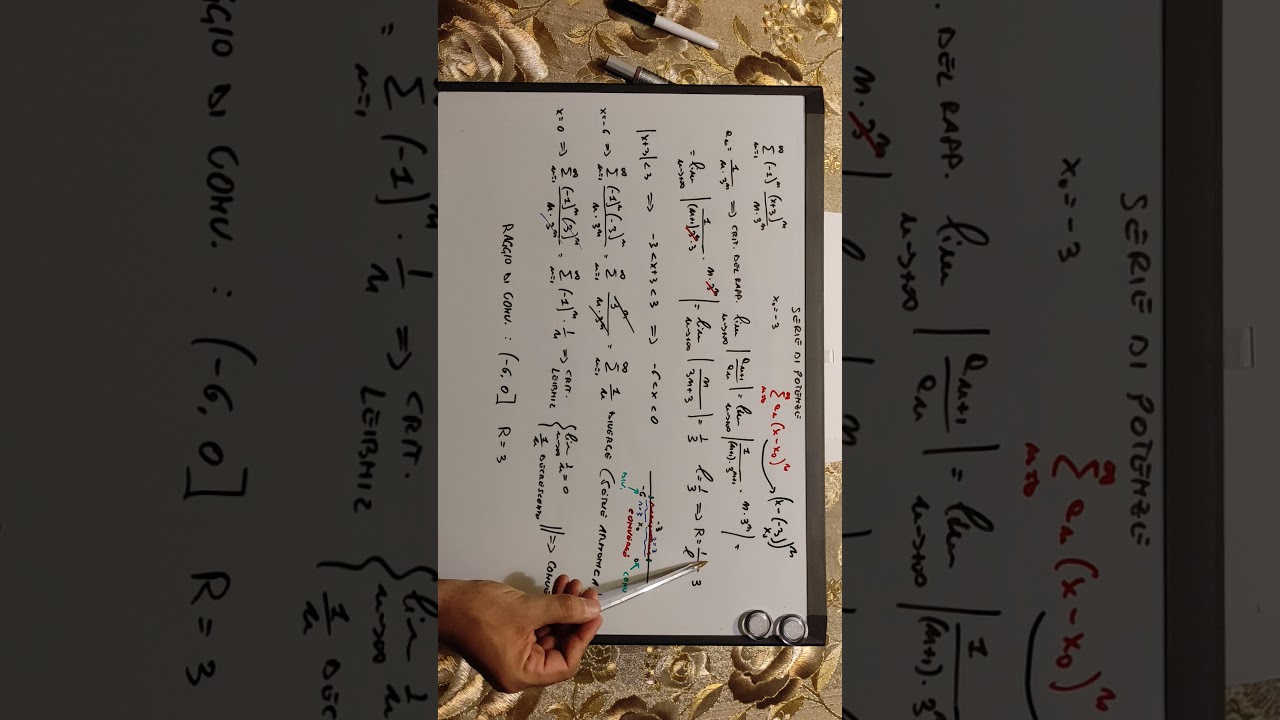 SERIE DI POTENZE
∑_{n=0}^{∞} a_n (x-x_0)^n
∑_{n=1}^{∞} (-1)^n (x+3)^n / (n·3^n)   x_0=-3   (x-(-3))^n
x_0
a_n = 1/(n·3^n) => CRIT. DEL RAPP. lim_{n->+∞} |a_{n+1}/a_n| = lim_{n->+∞} |1/((n+1)·3^{n+1}) · n·3^n| =
= lim_{n->+∞} |1/((n+1)·3^n·3) · n·3^n| = lim_{n->+∞} |n/(3n+3)| = 1/3   l=1/3 => R=1/l=3
|x+3|<3 => -3<x+3<3 => -6<x<0
-6 -3 0
R=3 x_0 R=3
DIV. CONVERGE CONV
x=-6 => ∑_{n=1}^{∞} (-1)^n (-3)^n / (n·3^n) = ∑_{n=1}^{∞} 3^n/(n·3^n) = ∑_{n=1}^{∞} 1/n DIVERGE (SERIE ARMONICA
x=0 => ∑_{n=1}^{∞} (-1)^n (3)^n / (n·3^n) = ∑_{n=1}^{∞} (-1)^n · 1/n => CRIT. LEIBNIZ { lim_{n->+∞} 1/n = 0
1/n DECRESCENTE // => CONVE
RAGGIO DI CONV. : (-6,0] R=3